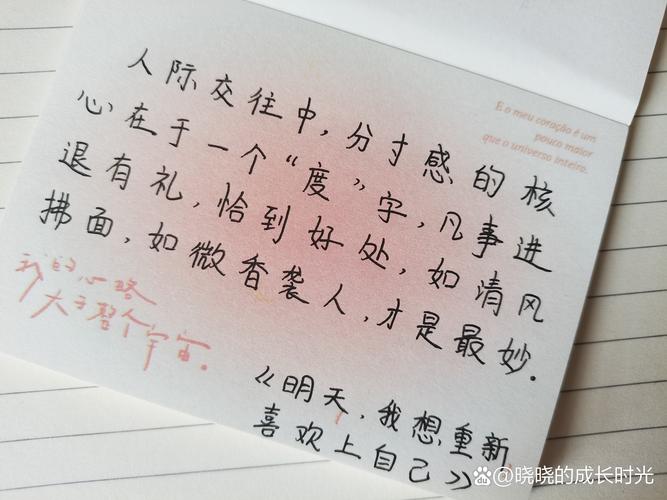 人际交往中,分寸感的核
心在于一个“度”字,凡事进
退有礼,恰到好处,如清风
拂面,如微香袭人,才是最妙.
E o meu coração é um
pouco maior
que o universo inteiro.
我的心略
大于整个宇宙。
《明天,我想重新
喜欢上自己》
百家号@晓晓的成长时光